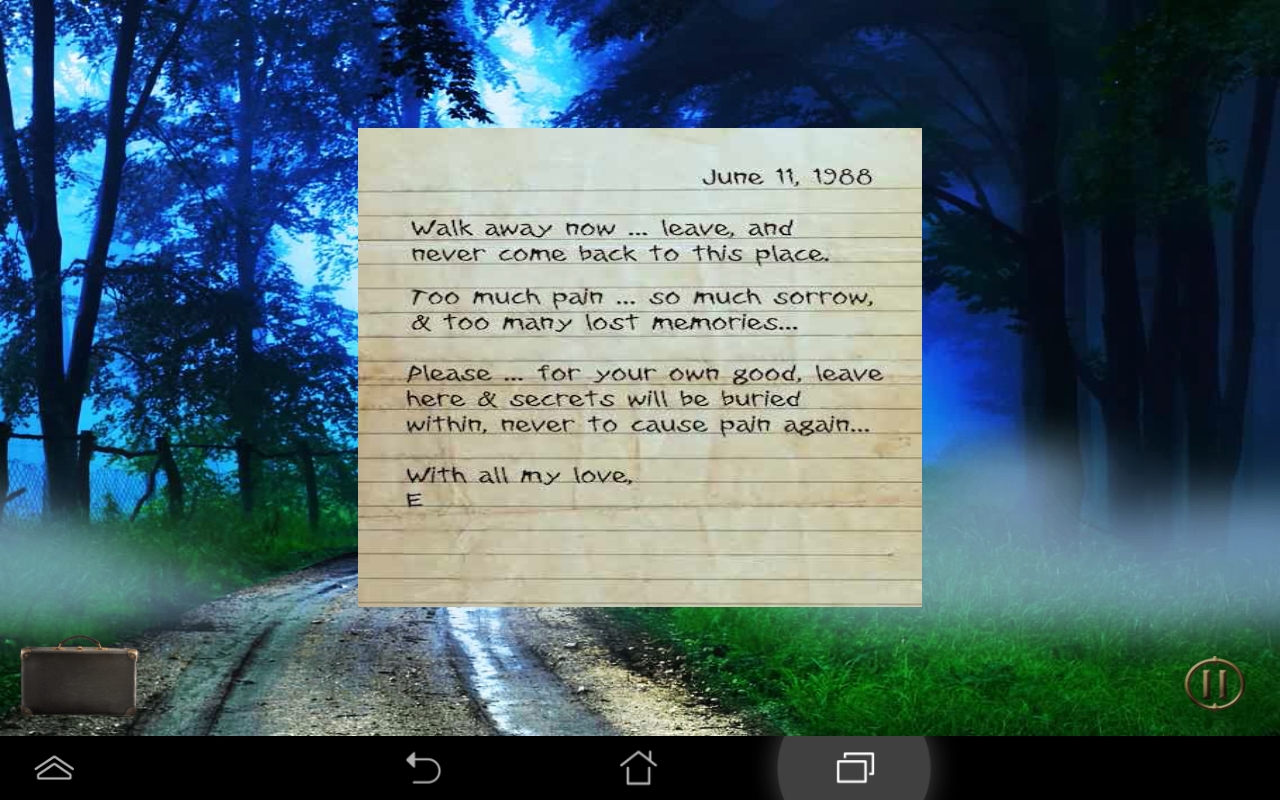 June 11, 1988
Walk away now ... leave, and
never come back to this place.
Too much pain ... so much sorrow,
& too many lost memories...
Please ... for your own good, leave
here & secrets will be buried
within, never to cause pain again...
With all my love,
E